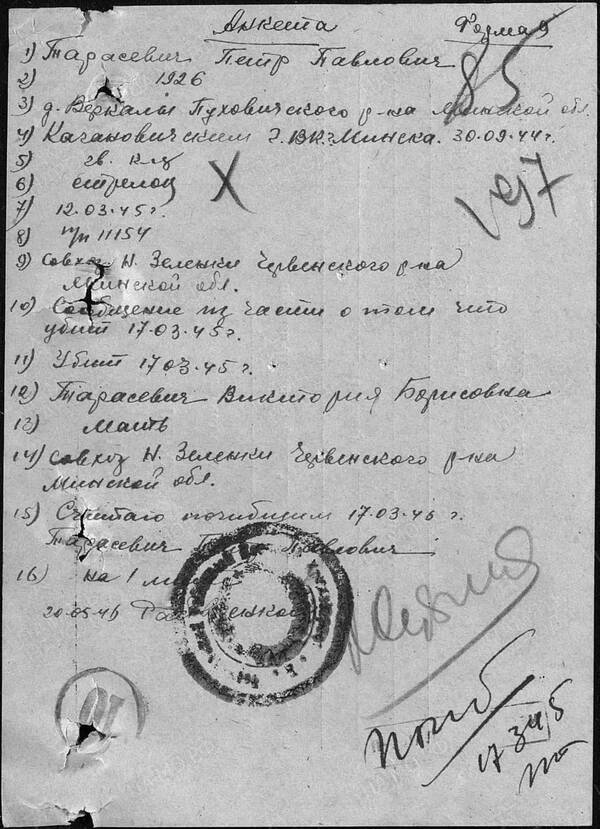 Анкета Форма 9
85
1) Тарасевич Петр Павлович
2) 1926
3) д. Веркалы Пуховичского р-на Минской обл.
4) Кагановичским Г.ВК г.Минска. 30.09.44г.
5) гв. кл/
6) стрелок X
497
7) 12.03.45г.
8) п/п 11154
9) Совхоз Н. Зеленки Червенского р-на
Минской обл.
10) Сообщение из части о том что
убит 17.03.45г.
11) Убит 17.03.45г.
12) Тарасевич Виктория Борисовна
13) мать
14) Совхоз Н. Зеленки Червенского р-на
Минской обл.
15) Считаю погибшим 17.03.45 г.
Тарасевич Петр Павлович
16) на 1 
20.05.46
погиб
17 3 45
10